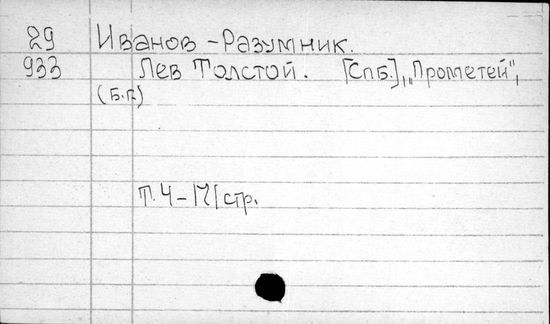 29 Иванов-Разумник.
933 Лев Толстой. [Спб.], "Прометей",
(б.г.)
Т. 4-171 стр.